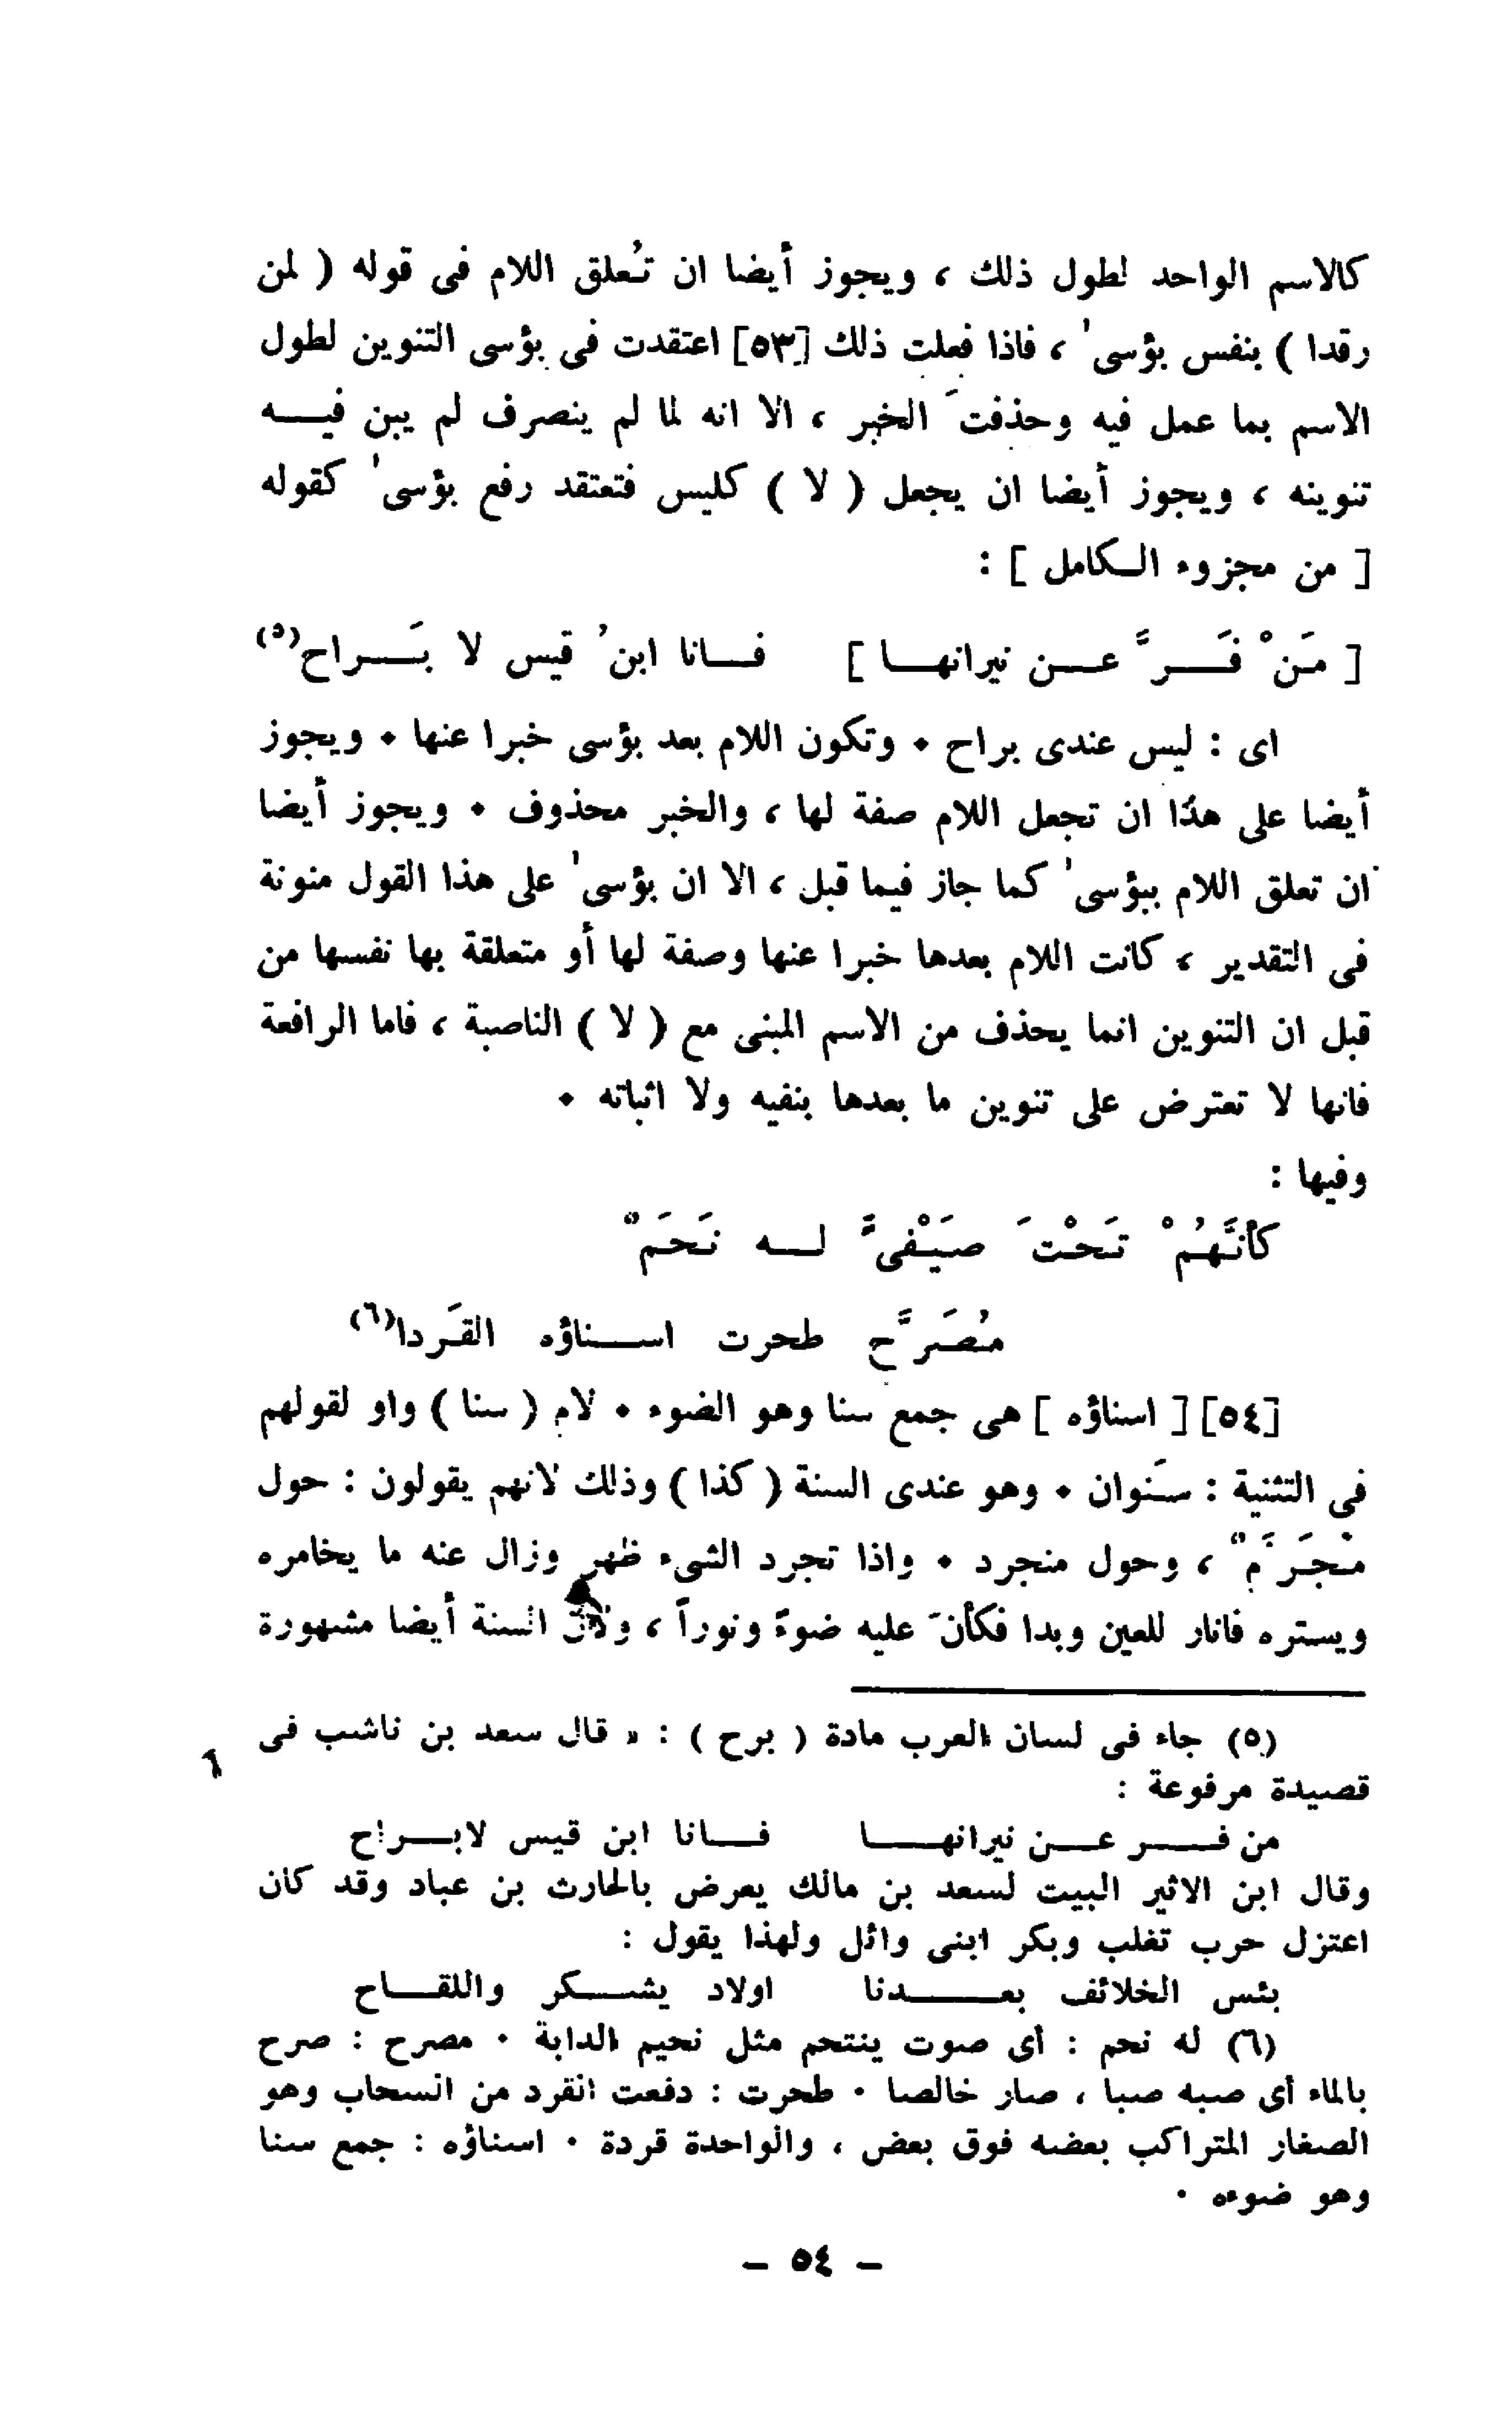 كالاسم الواحد لطول ذلك ، ويجوز أيضا ان تُعلق اللام فى قوله ( لمن
رقدا ) بنفس بؤسى' ، فاذا فعلت ذلك [٥٣] اعتقدت فى بؤسى التنوين لطول
الاسم بما عمل فيه وحذفتَ الخبر ، الا انه لما لم ينصرف لم يبن فيــه
تنوينه ، ويجوز أيضا ان يجعل ( لا ) كليس فتعتقد رفع بؤسى' كقوله
[ من مجزوء الـكامل ] :
[ مَنْ فَــرَّ عــن نيرانهــا ] فــانا ابنُ قيس لا بَــراح(٥)
اى : ليس عندى براح • وتكون اللام بعد بؤسى خبرا عنها • ويجوز
أيضا على هذا ان تجعل اللام صفة لها ، والخبر محذوف • ويجوز أيضا
ان تعلق اللام ببؤسى' كما جاز فيما قبل ، الا ان بؤسى' على هذا القول منونة
فى التقدير ، كانت اللام بعدها خبرا عنها وصفة لها أو متعلقة بها نفسها من
قبل ان التنوين انما يحذف من الاسم المبنى مع ( لا ) الناصبة ، فاما الرافعة
فانها لا تعترض على تنوين ما بعدها بنفيه ولا اثباته •
وفيها :
كأنَّهُمْ تَحْتَ صَيْفىَّ لــه نَحَمٌ
مُصَرَّح طحرت اســناؤه القَردا(٦)
[٥٤] [ اسناؤه ] هى جمع سنا وهو الضوء • لام ( سنا ) واو لقولهم
فى التثنية : سَنوان • وهو عندى السنة ( كذا ) وذلك لانهم يقولون : حول
مُجَرَّمٌ ، وحول منجرد • واذا تجرد الشىء ظهر وزال عنه ما يخامره
ويستره فانار للعين وبدا فكأنَ عليه ضوءً ونوراً ، ولان السنة أيضا مشهورة
(٥) جاء فى لسان العرب مادة ( برح ) : « قال سعد بن ناشب فى
٦
قصيدة مرفوعة :
من فــر عــن نيرانهــا فــانا ابن قيس لابــراح
وقال ابن الاثير البيت لسعد بن مالك يعرض بالحارث بن عباد وقد كان
اعتزل حرب تغلب وبكر ابنى وائل ولهذا يقول :
بئس الخلائف بعــدنا اولاد يشــكر واللقــاح
(٦) له نحم : أى صوت ينتحم مثل نحيم الدابة • مصرح : صرح
بالماء أى صبه صبا ، صار خالصا • طحرت : دفعت القرد من السحاب وهو
الصغار المتراكب بعضه فوق بعض ، والواحدة قردة • اسناؤه : جمع سنا
وهو ضوءه •
— ٥٤ —